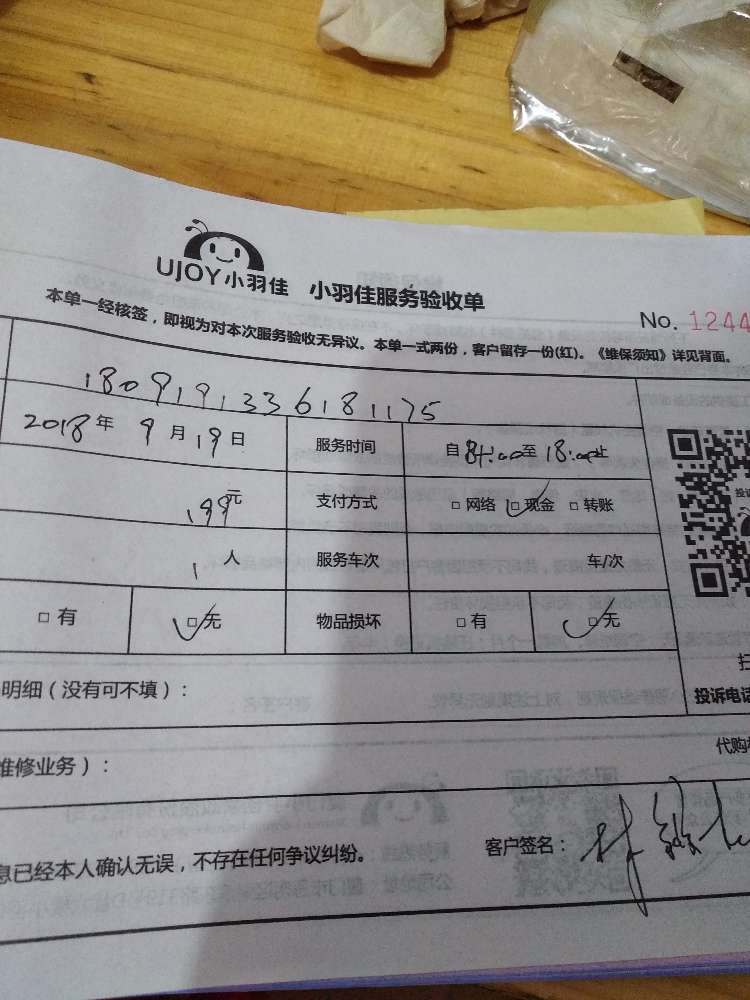 UJOY小羽佳 小羽佳服务验收单
No. 1244
本单一经核签，即视为对本次服务验收无异议。本单一式两份，客户留存一份(红)。《维保须知》详见背面。
1809191336181175
2018年 9月19日 服务时间 自 至18:00止
199元 支付方式 □网络 □现金 □转账
1人 服务车次 车/次
□有 □无 物品损坏 □有 □无
明细（没有可不填）：
投诉电话
维修业务）：
代购
息已经本人确认无误，不存在任何争议纠纷。
客户签名：林